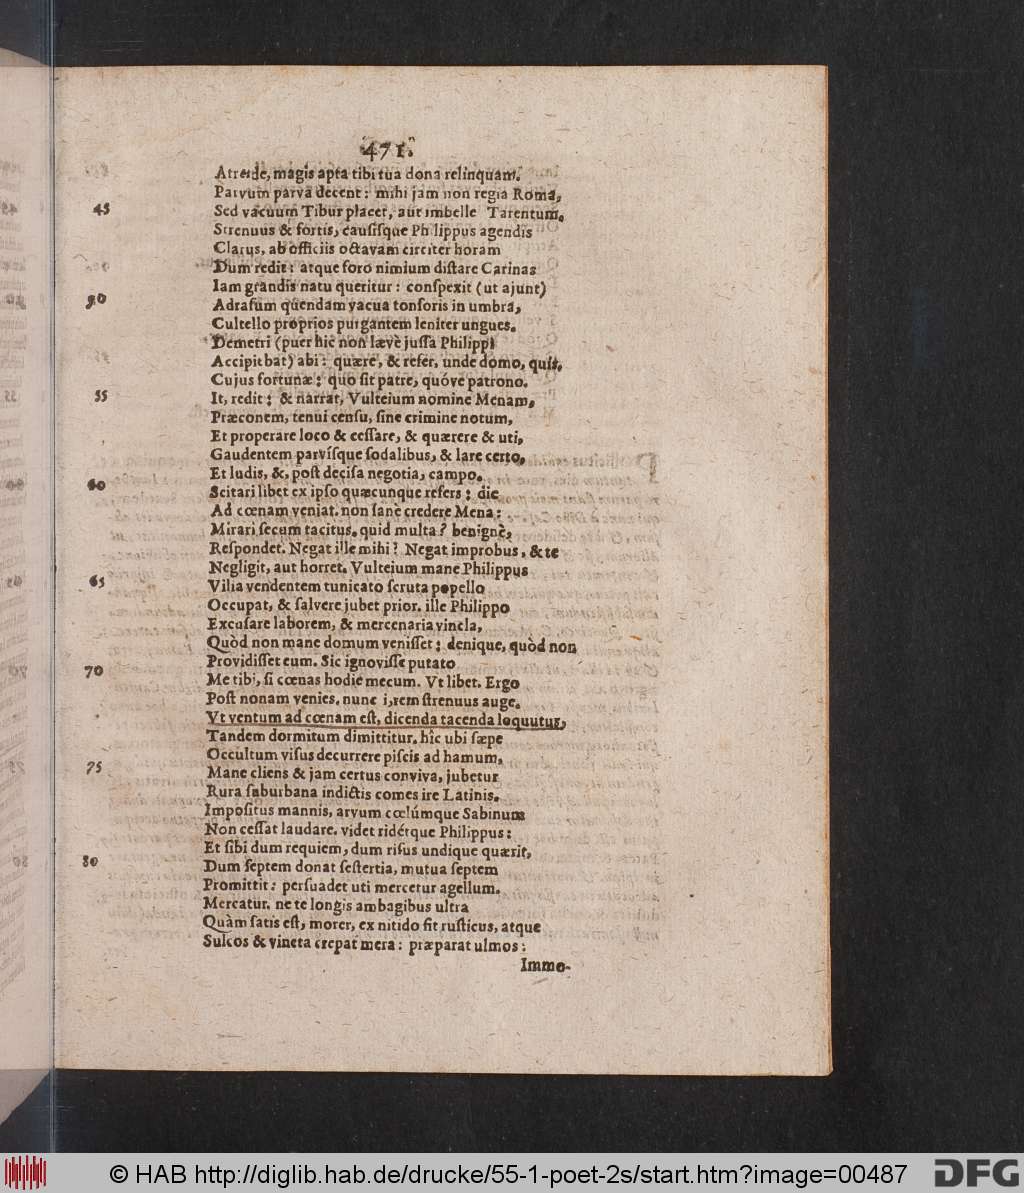 471.
Atreide, magis apta tibi tua dona relinquam.
Parvum parva decent: mihi jam non regia Roma,
45 Sed vacuum Tibur placet, aut imbelle Tarentum.
Strenuus & fortis, causiſque Philippus agendis
Clarus, ab officiis octavam circiter horam
Dum redit: atque foro nimium diſtare Carinas
Iam grandis natu queritur: conſpexit (ut ajunt)
50 Adraſum quendam vacua tonſoris in umbra,
Cultello proprios purgantem leniter ungues.
Demetri (puer hic non lævè juſſa Philippi
Accipitbat) abi: quære, & refer, unde domo, quis,
Cujus fortunæ: quo ſit patre, quóve patrono.
55 It, redit: & narrat, Vulteium nomine Menam,
Præconem, tenui cenſu, ſine crimine notum,
Et properare loco & ceſſare, & quærere & uti,
Gaudentem parvíſque ſodalibus, & lare certo,
Et ludis, &, poſt deciſa negotia, campo.
60 Scitari libet ex ipſo quæcunque refers: dic
Ad cœnam veniat. non ſanè credere Mena:
Mirari ſecum tacitus. quid multa? benignè,
Reſpondet. Negat ille mihi? Negat improbus, & te
Negligit, aut horret. Vulteium mane Philippus
65 Vilia vendentem tunicato ſcruta popello
Occupat, & ſalvere jubet prior. ille Philippo
Excuſare laborem, & mercenaria vincla,
Quòd non mane domum veniſſet: denique, quòd non
Providiſſet eum. Sic ignoviſſe putato
70 Me tibi, ſi cœnas hodie mecum. Vt libet. Ergo
Poſt nonam venies. nunc i, rem ſtrenuus auge.
Vt ventum ad cœnam eſt, dicenda tacenda loquutus,
Tandem dormitum dimittitur. hîc ubi ſæpe
Occultum viſus decurrere piſcis ad hamum,
75 Mane cliens & jam certus conviva, jubetur
Rura ſuburbana indictis comes ire Latinis.
Impoſitus mannis, arvum cœlúmque Sabinum
Non ceſſat laudare. videt ridétque Philippus:
Et ſibi dum requiem, dum riſus undique quærit,
80 Dum ſeptem donat ſeſtertia, mutua ſeptem
Promittit: perſuadet uti mercetur agellum.
Mercatur. ne te longis ambagibus ultra
Quàm ſatis eſt, morer, ex nitido fit ruſticus, atque
Sulcos & vineta crepat mera: præparat ulmos:
Immo-
© HAB http://diglib.hab.de/drucke/55-1-poet-2s/start.htm?image=00487
DFG